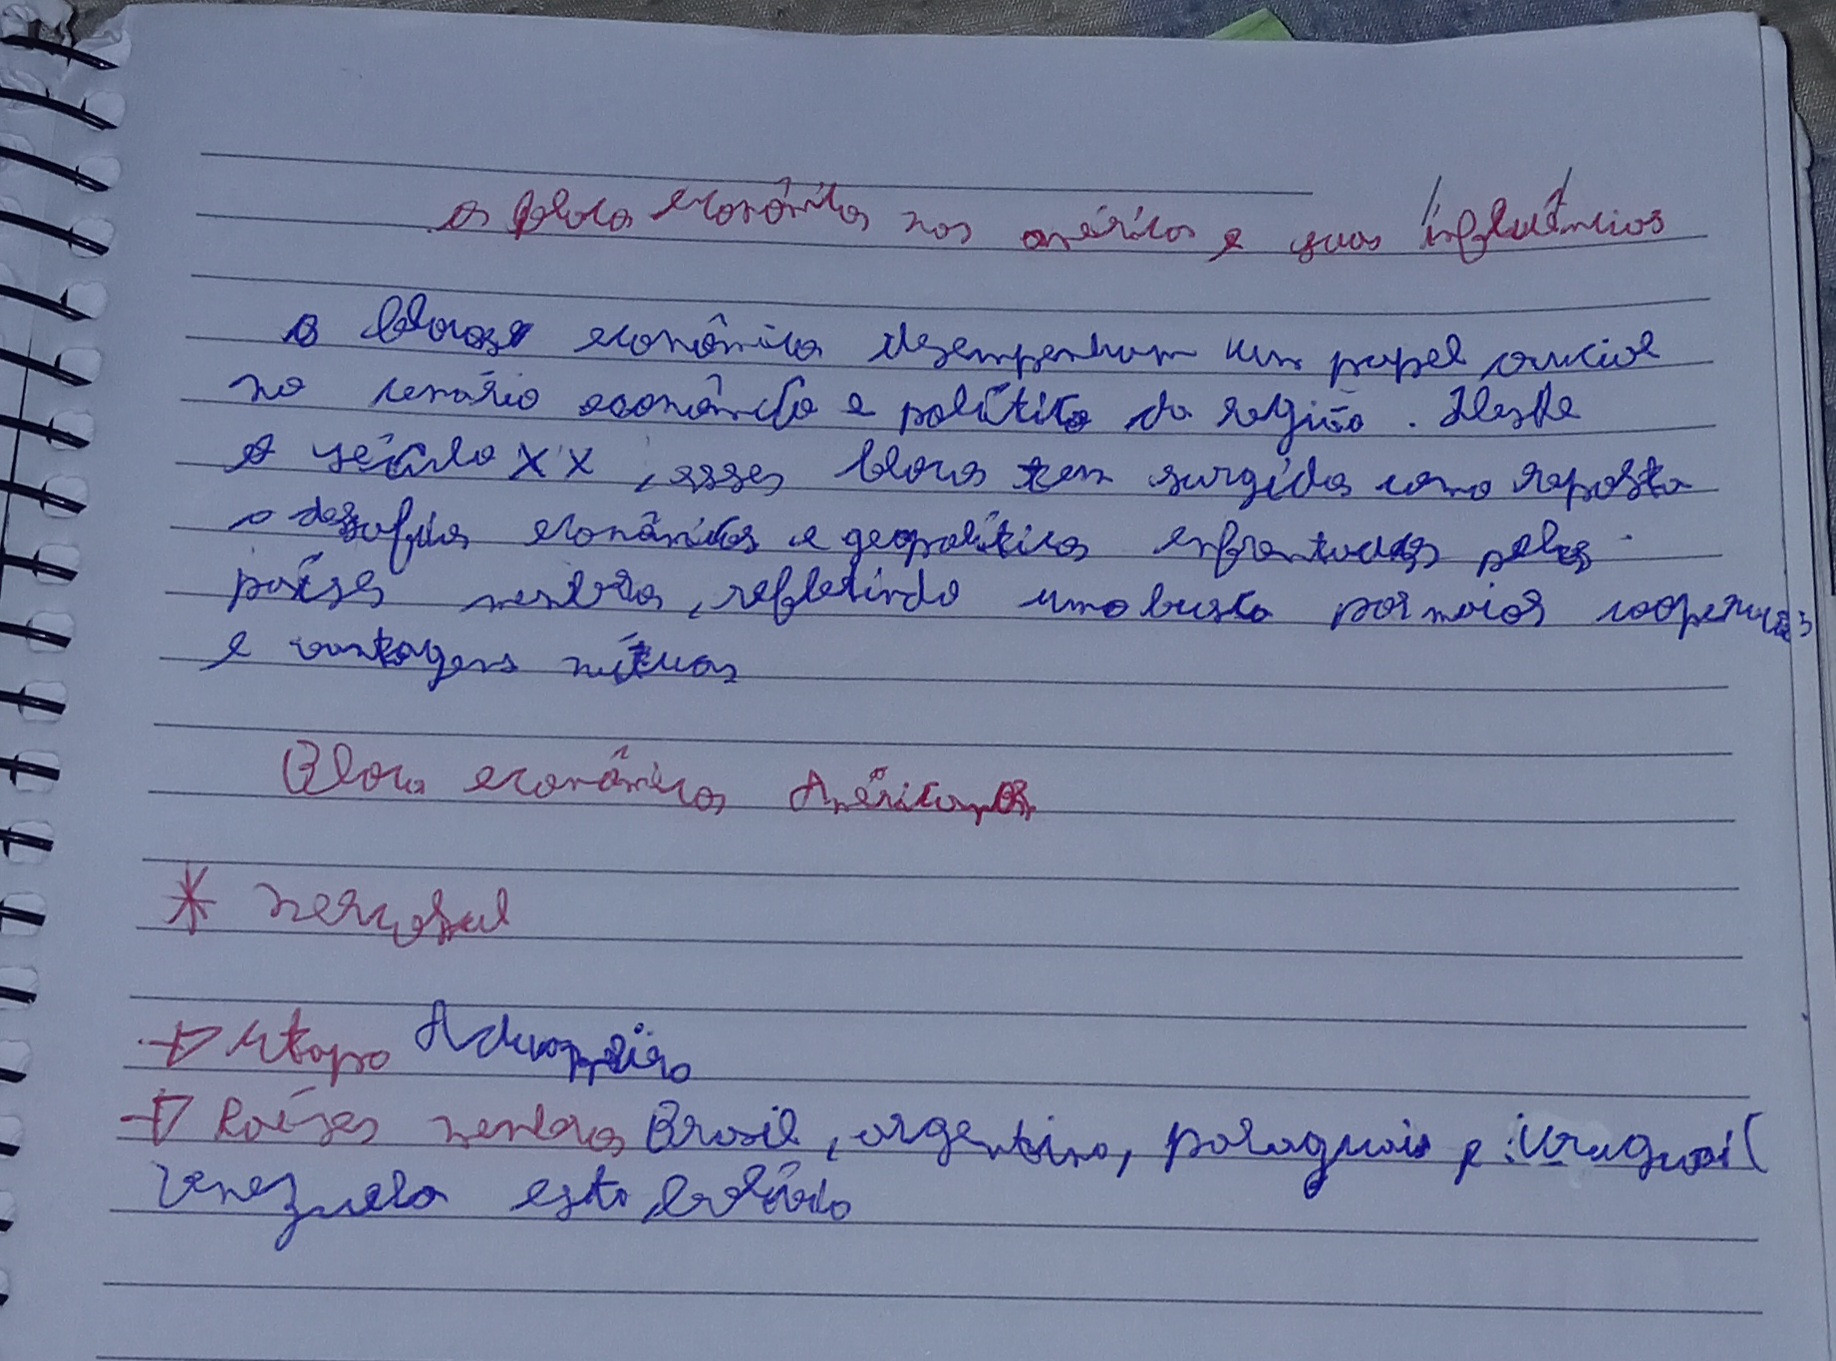 os blocos econômicos nas américas e suas influências
os blocos econômicos desempenham um papel crucial
no cenário econômico e político da região. Desde
o século XX, esses blocos tem surgidos como reposta
a desafios econômicos e geopolíticos enfrentados pelos
países membros, refletindo uma busca por maior cooperação
e vantagens mútuas
Blocos econômicos Américanos
* Mercosul
→ etapa Aduaneira
→ Países membros Brasil, argentina, paraguai e uruguai (
Venezuela esta